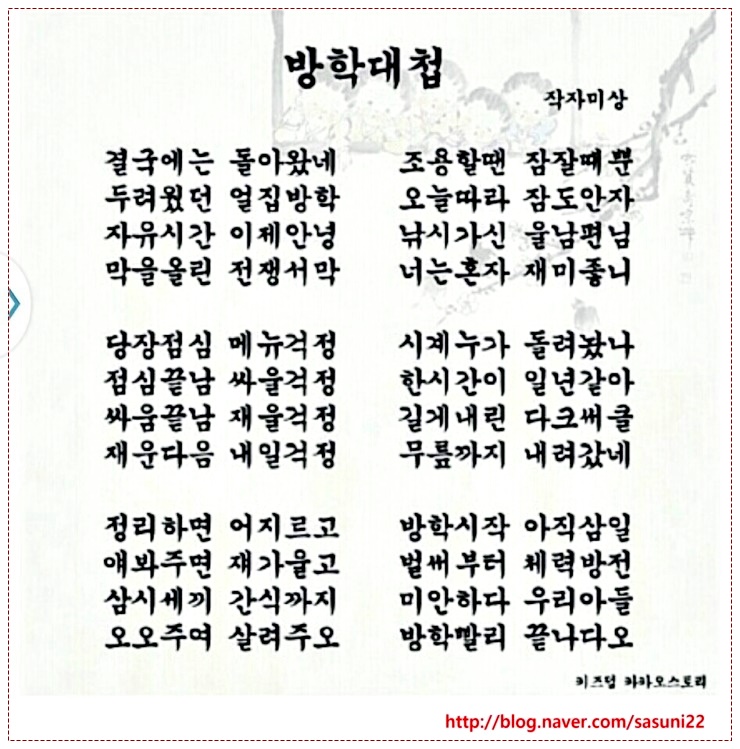 방학대첩
작자미상
결국에는 돌아왔네
두려웠던 얼집방학
자유시간 이제안녕
막을올린 전쟁서막
당장점심 메뉴걱정
점심끝남 싸울걱정
싸움끝남 재울걱정
재운다음 내일걱정
정리하면 어지르고
얘봐주면 쟤가울고
삼시세끼 간식까지
오오주여 살려주오
조용할땐 잠잘때뿐
오늘따라 잠도안자
낚시가신 울남편님
너는혼자 재미좋니
시계누가 돌려놨나
한시간이 일년같아
길게내린 다크써클
무릎까지 내려갔네
방학시작 아직삼일
벌써부터 체력방전
미안하다 우리아들
방학빨리 끝나다오
키즈덤 카카오스토리
http://blog.naver.com/sasuni22